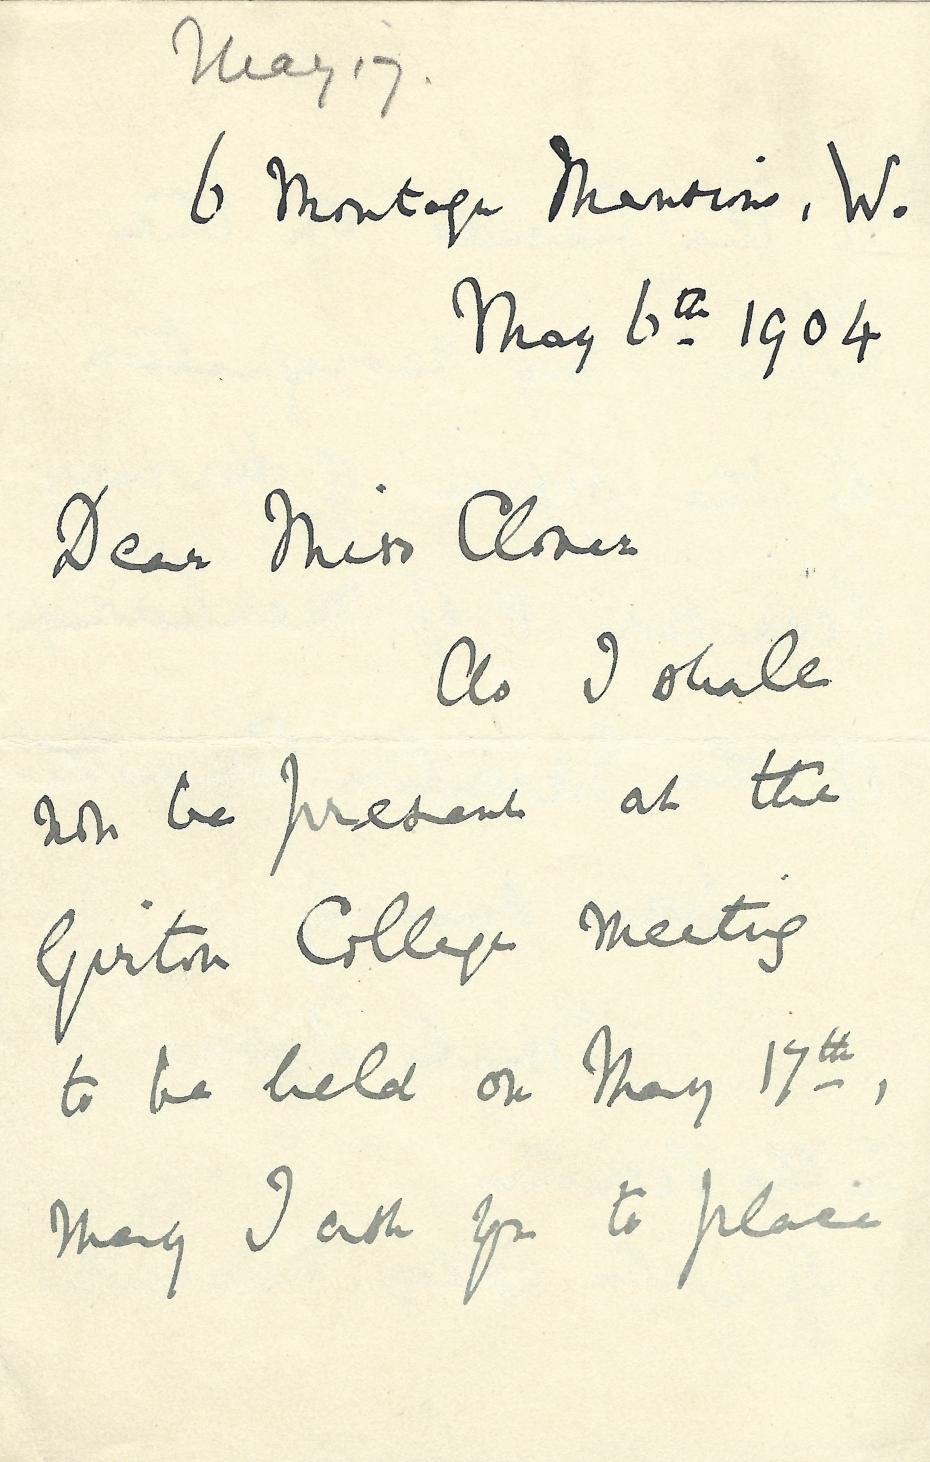 May 17.
6 Montagu Mansions, W.
May 6th 1904
Dear Miss Clover
As I shall
not be present at the
Girton College meeting
to be held on May 17th,
may I ask you to place